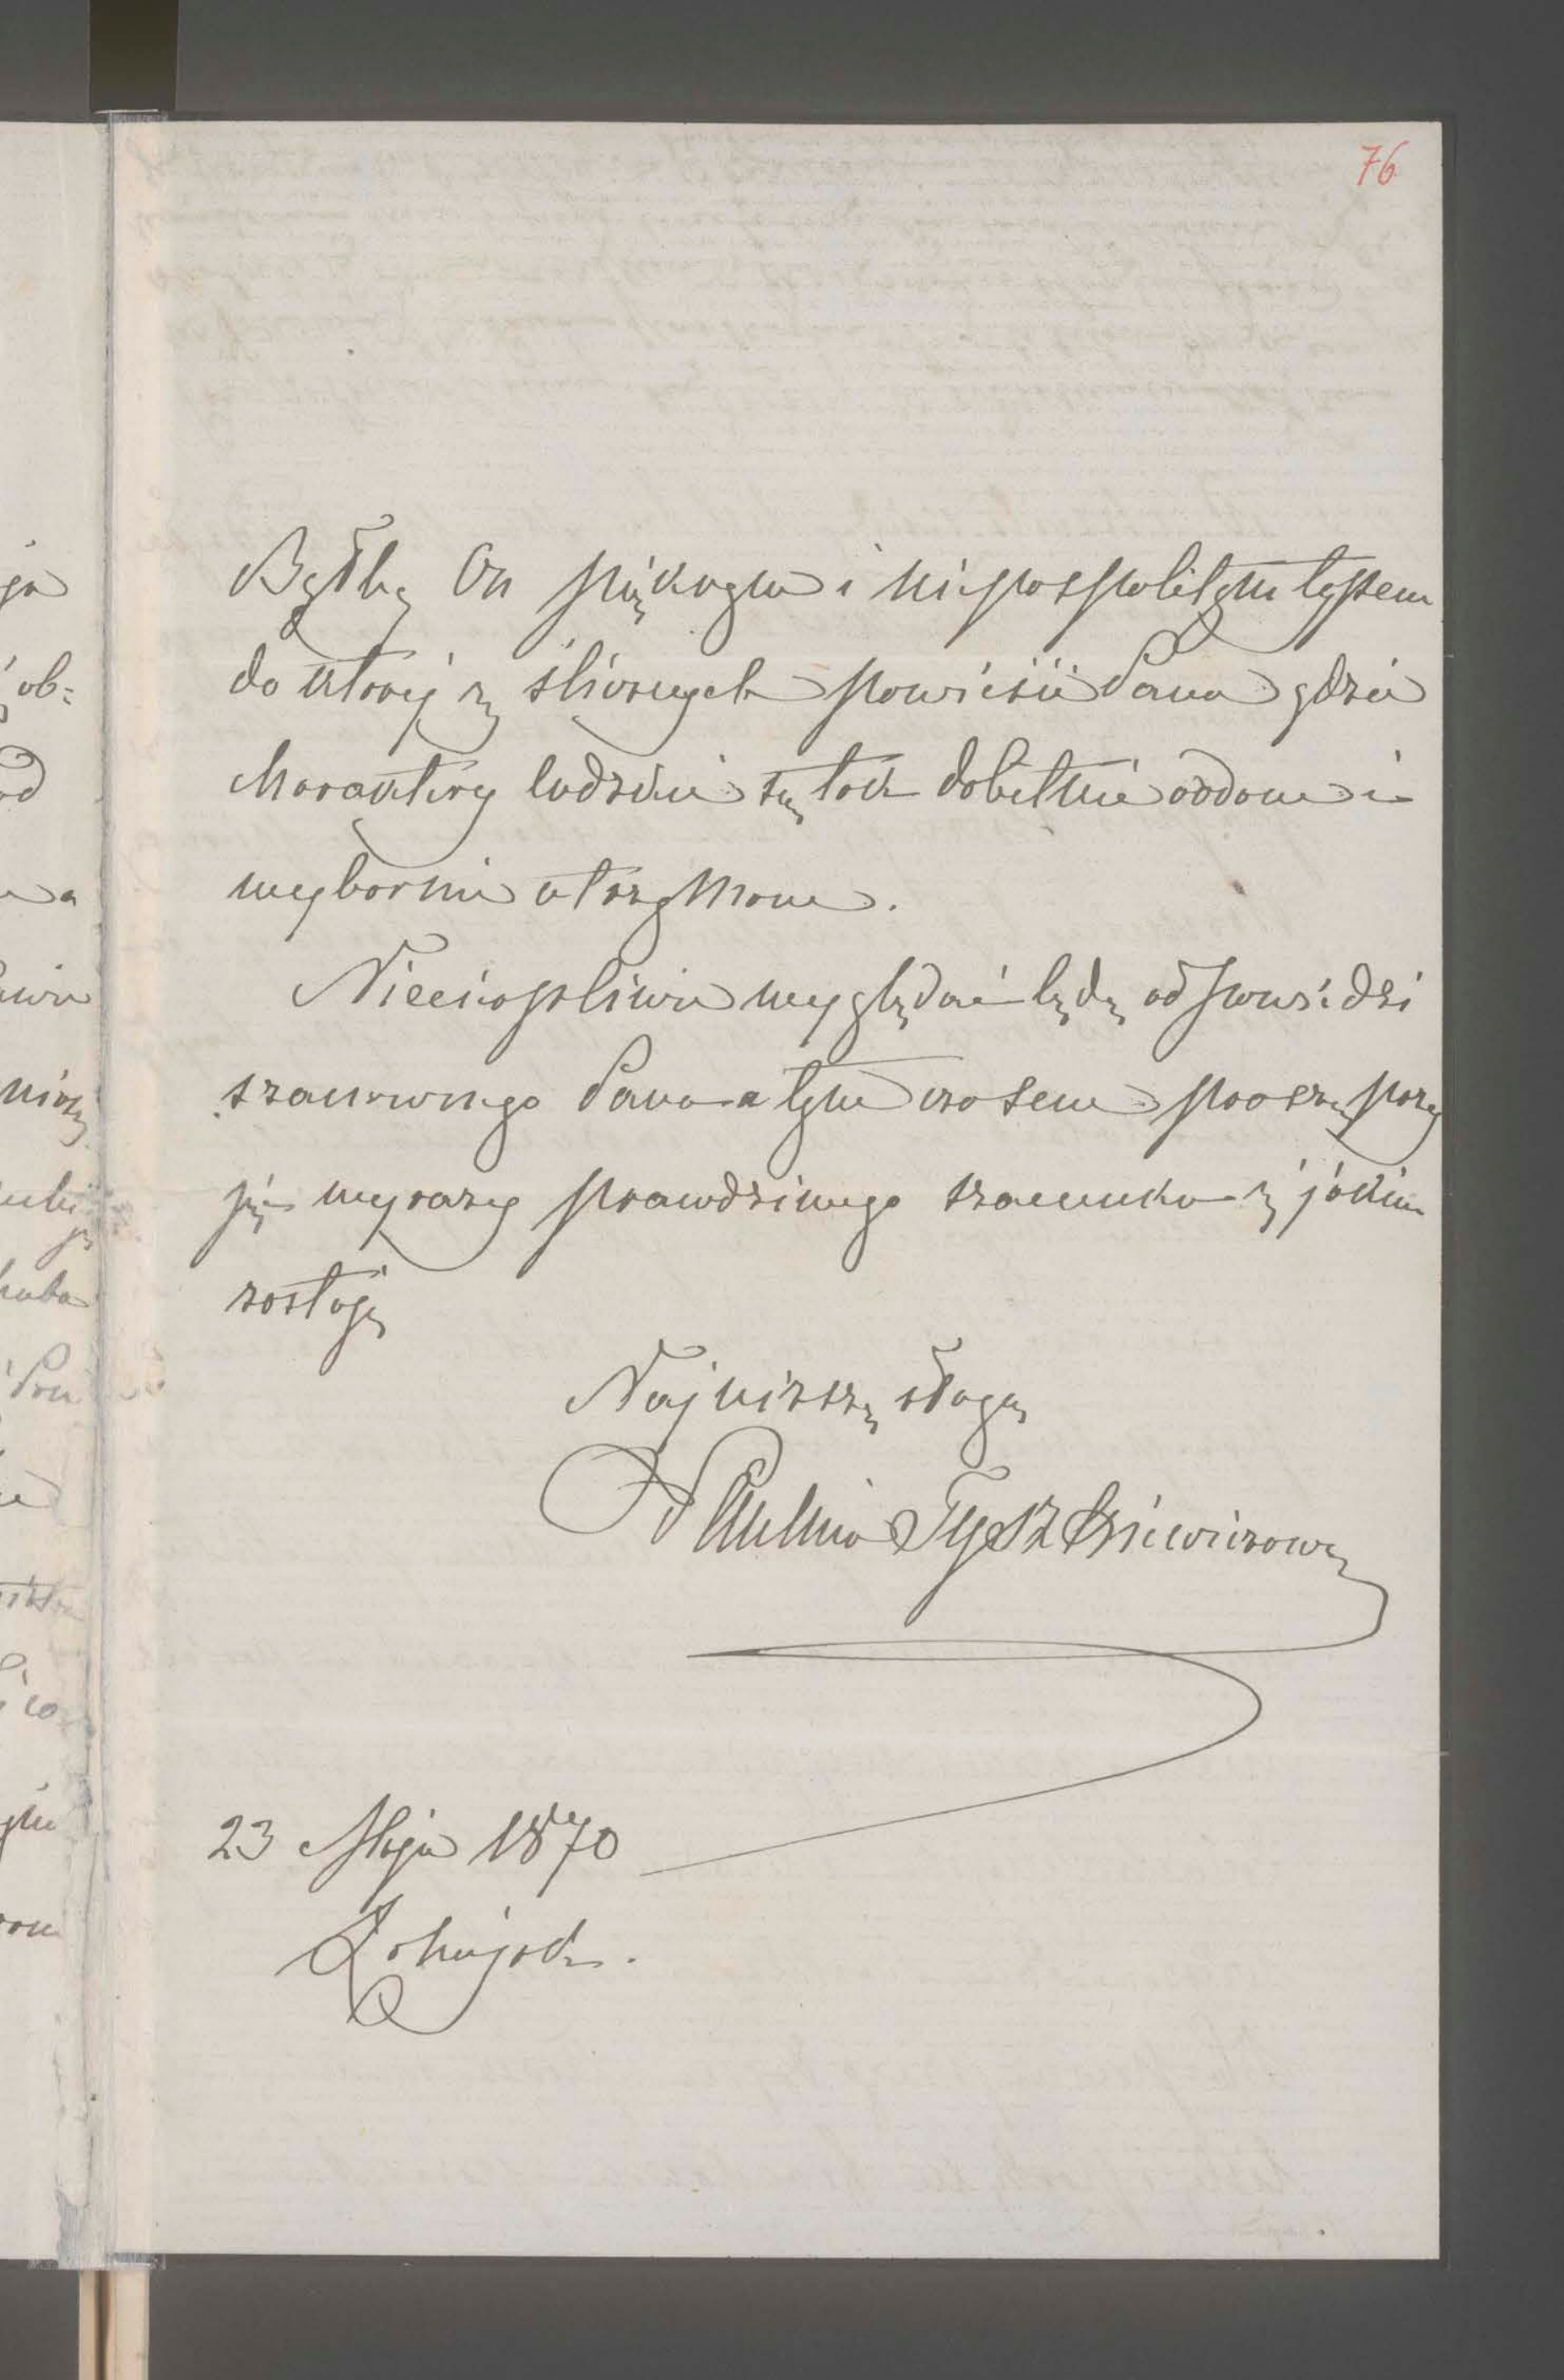 76
Byłby On pięknym i niepospolitym typem
do której z ślicznych powieści Pana gdzie
charaktery ludzkie są tak dobitnie oddane i
wybornie utrzymane.
Niecierpliwie wyglądać będę odpowiedzi
szanownego Pana a tym czasem proszę przy
jąć wyrazy prawdziwego szacunku z jakim
zostaję
Najniższą sługą
Paulina Tyszkiewiczowa
23 Maja 1870